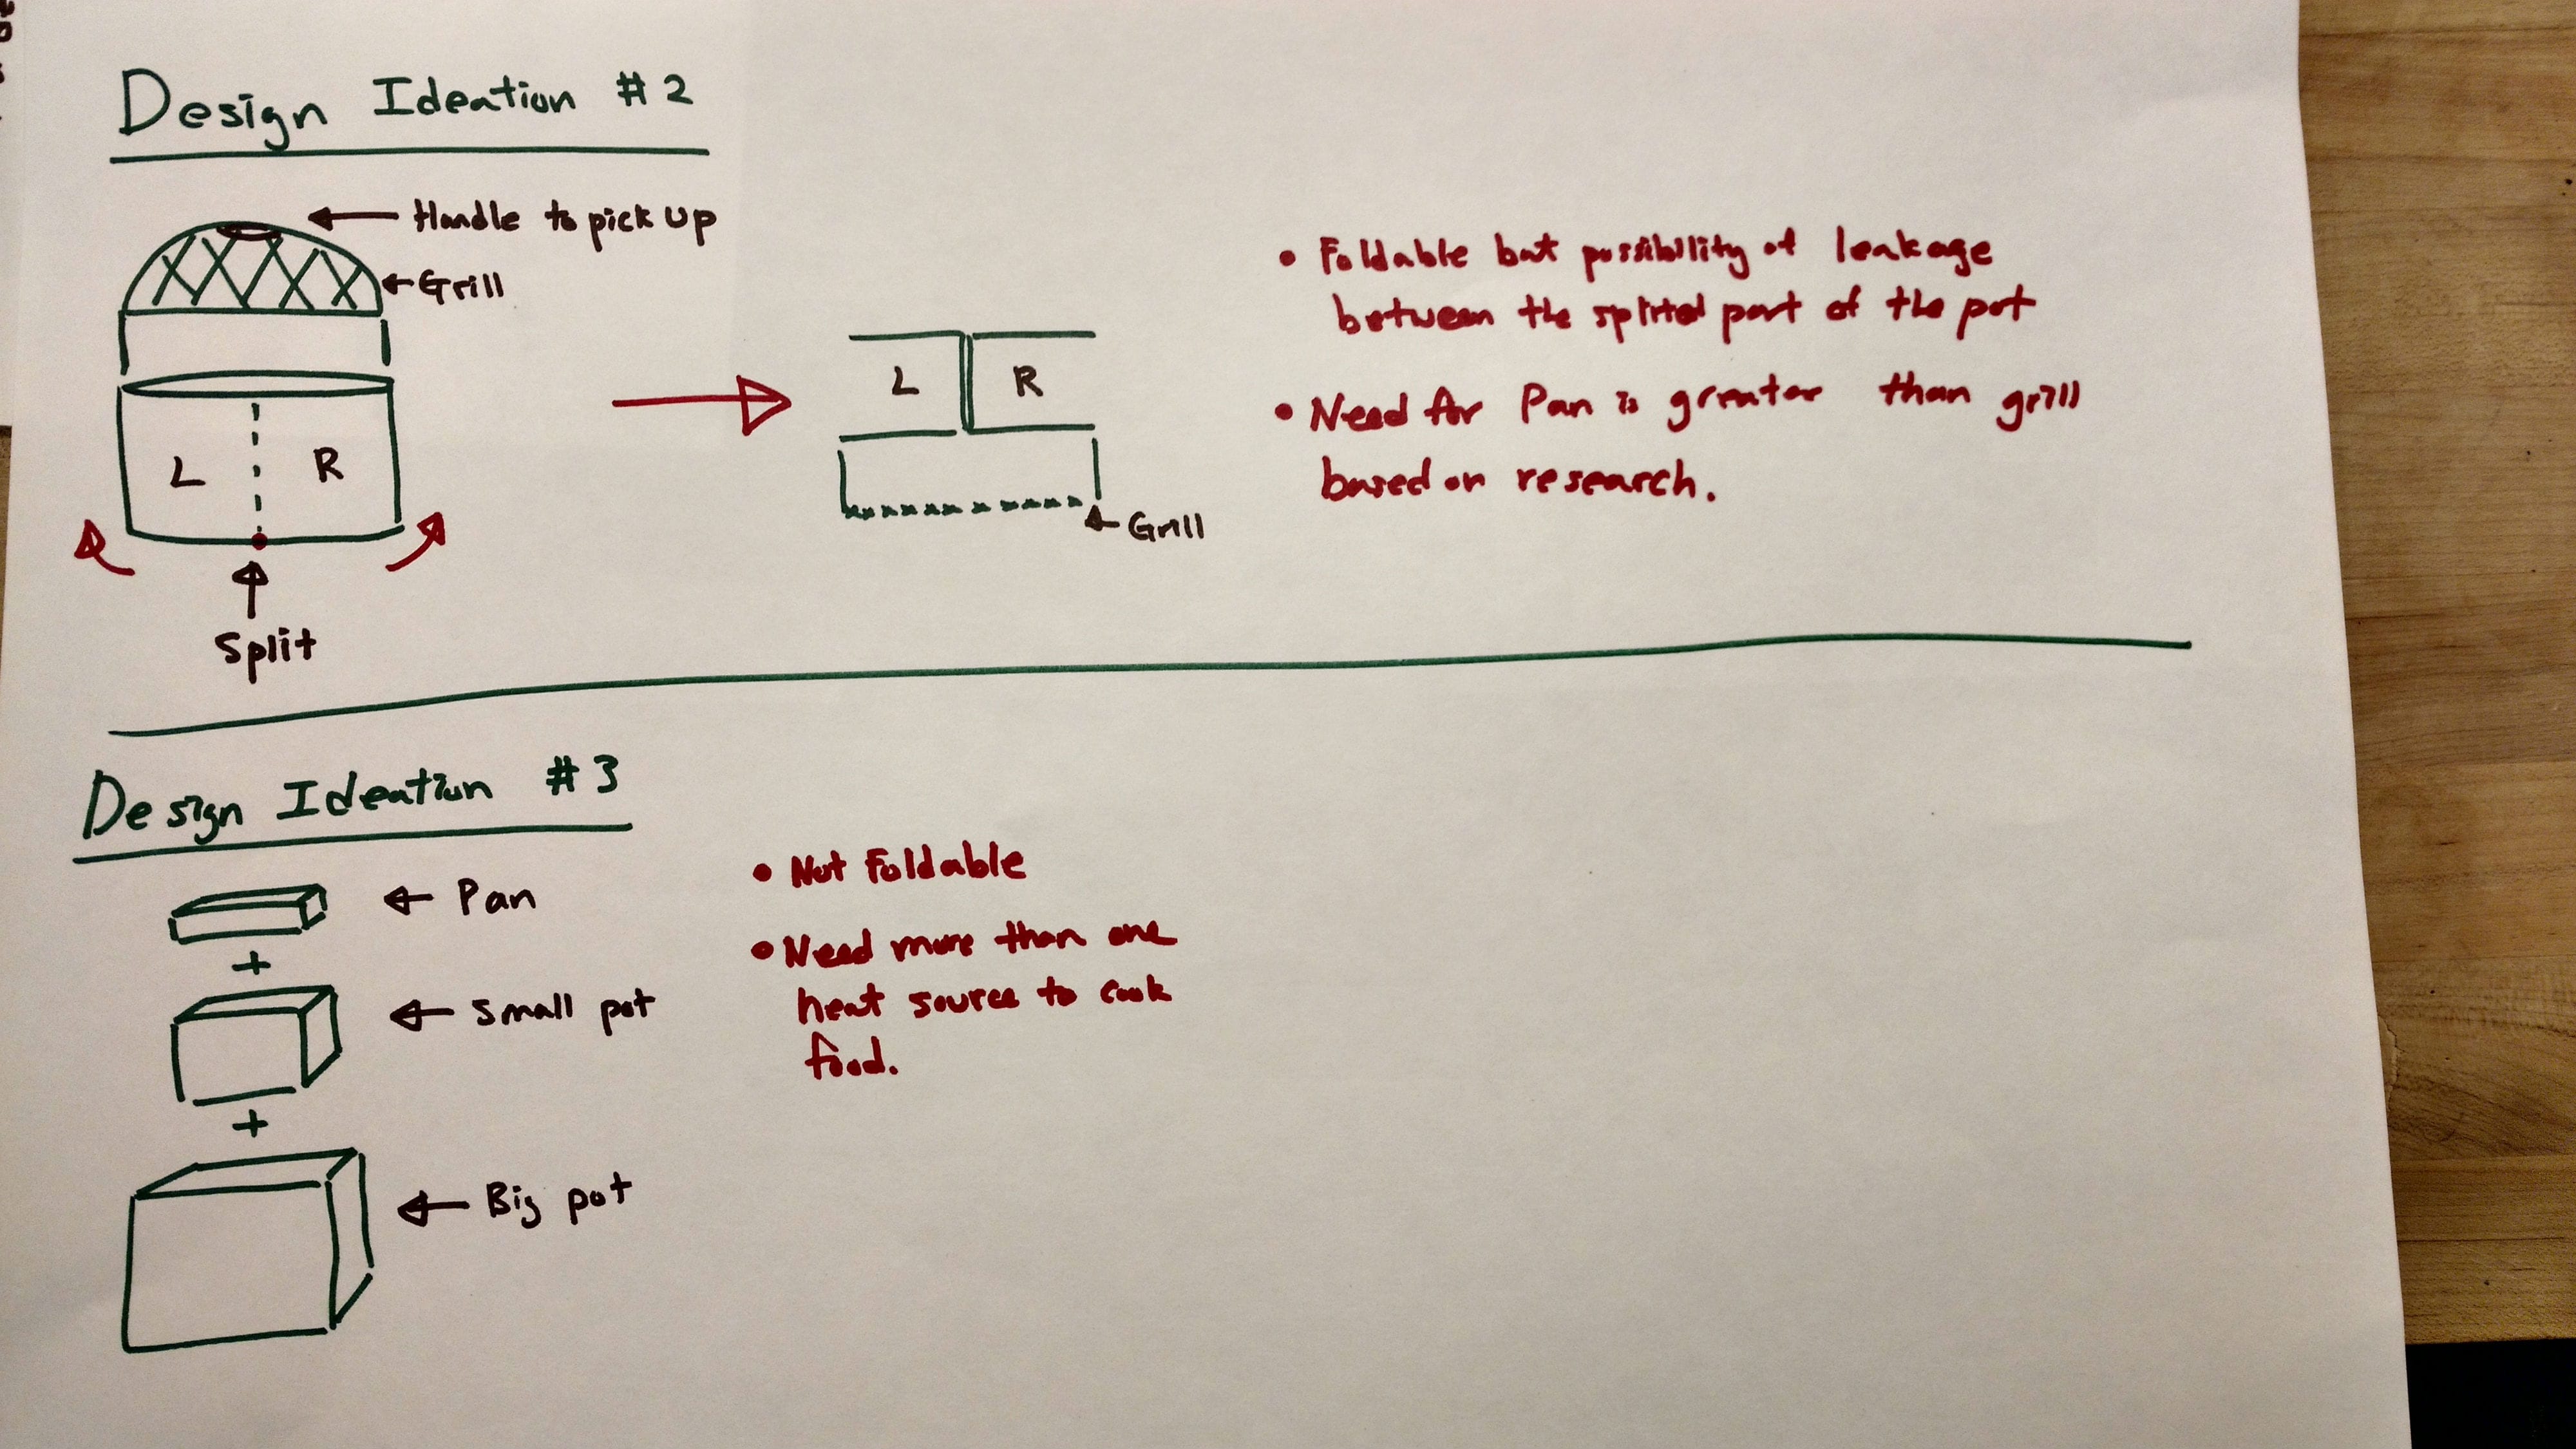 Design Ideation #2
Handle to pick up
Grill
L
R
Split
L
R
Grill
• Foldable but possibility of leakage
between the splitted part of the pot
• Need for Pan is greater than grill
based on research.
Design Ideation #3
Pan
+
Small pot
+
Big pot
• Not Foldable
• Need more than one
heat source to cook
food.